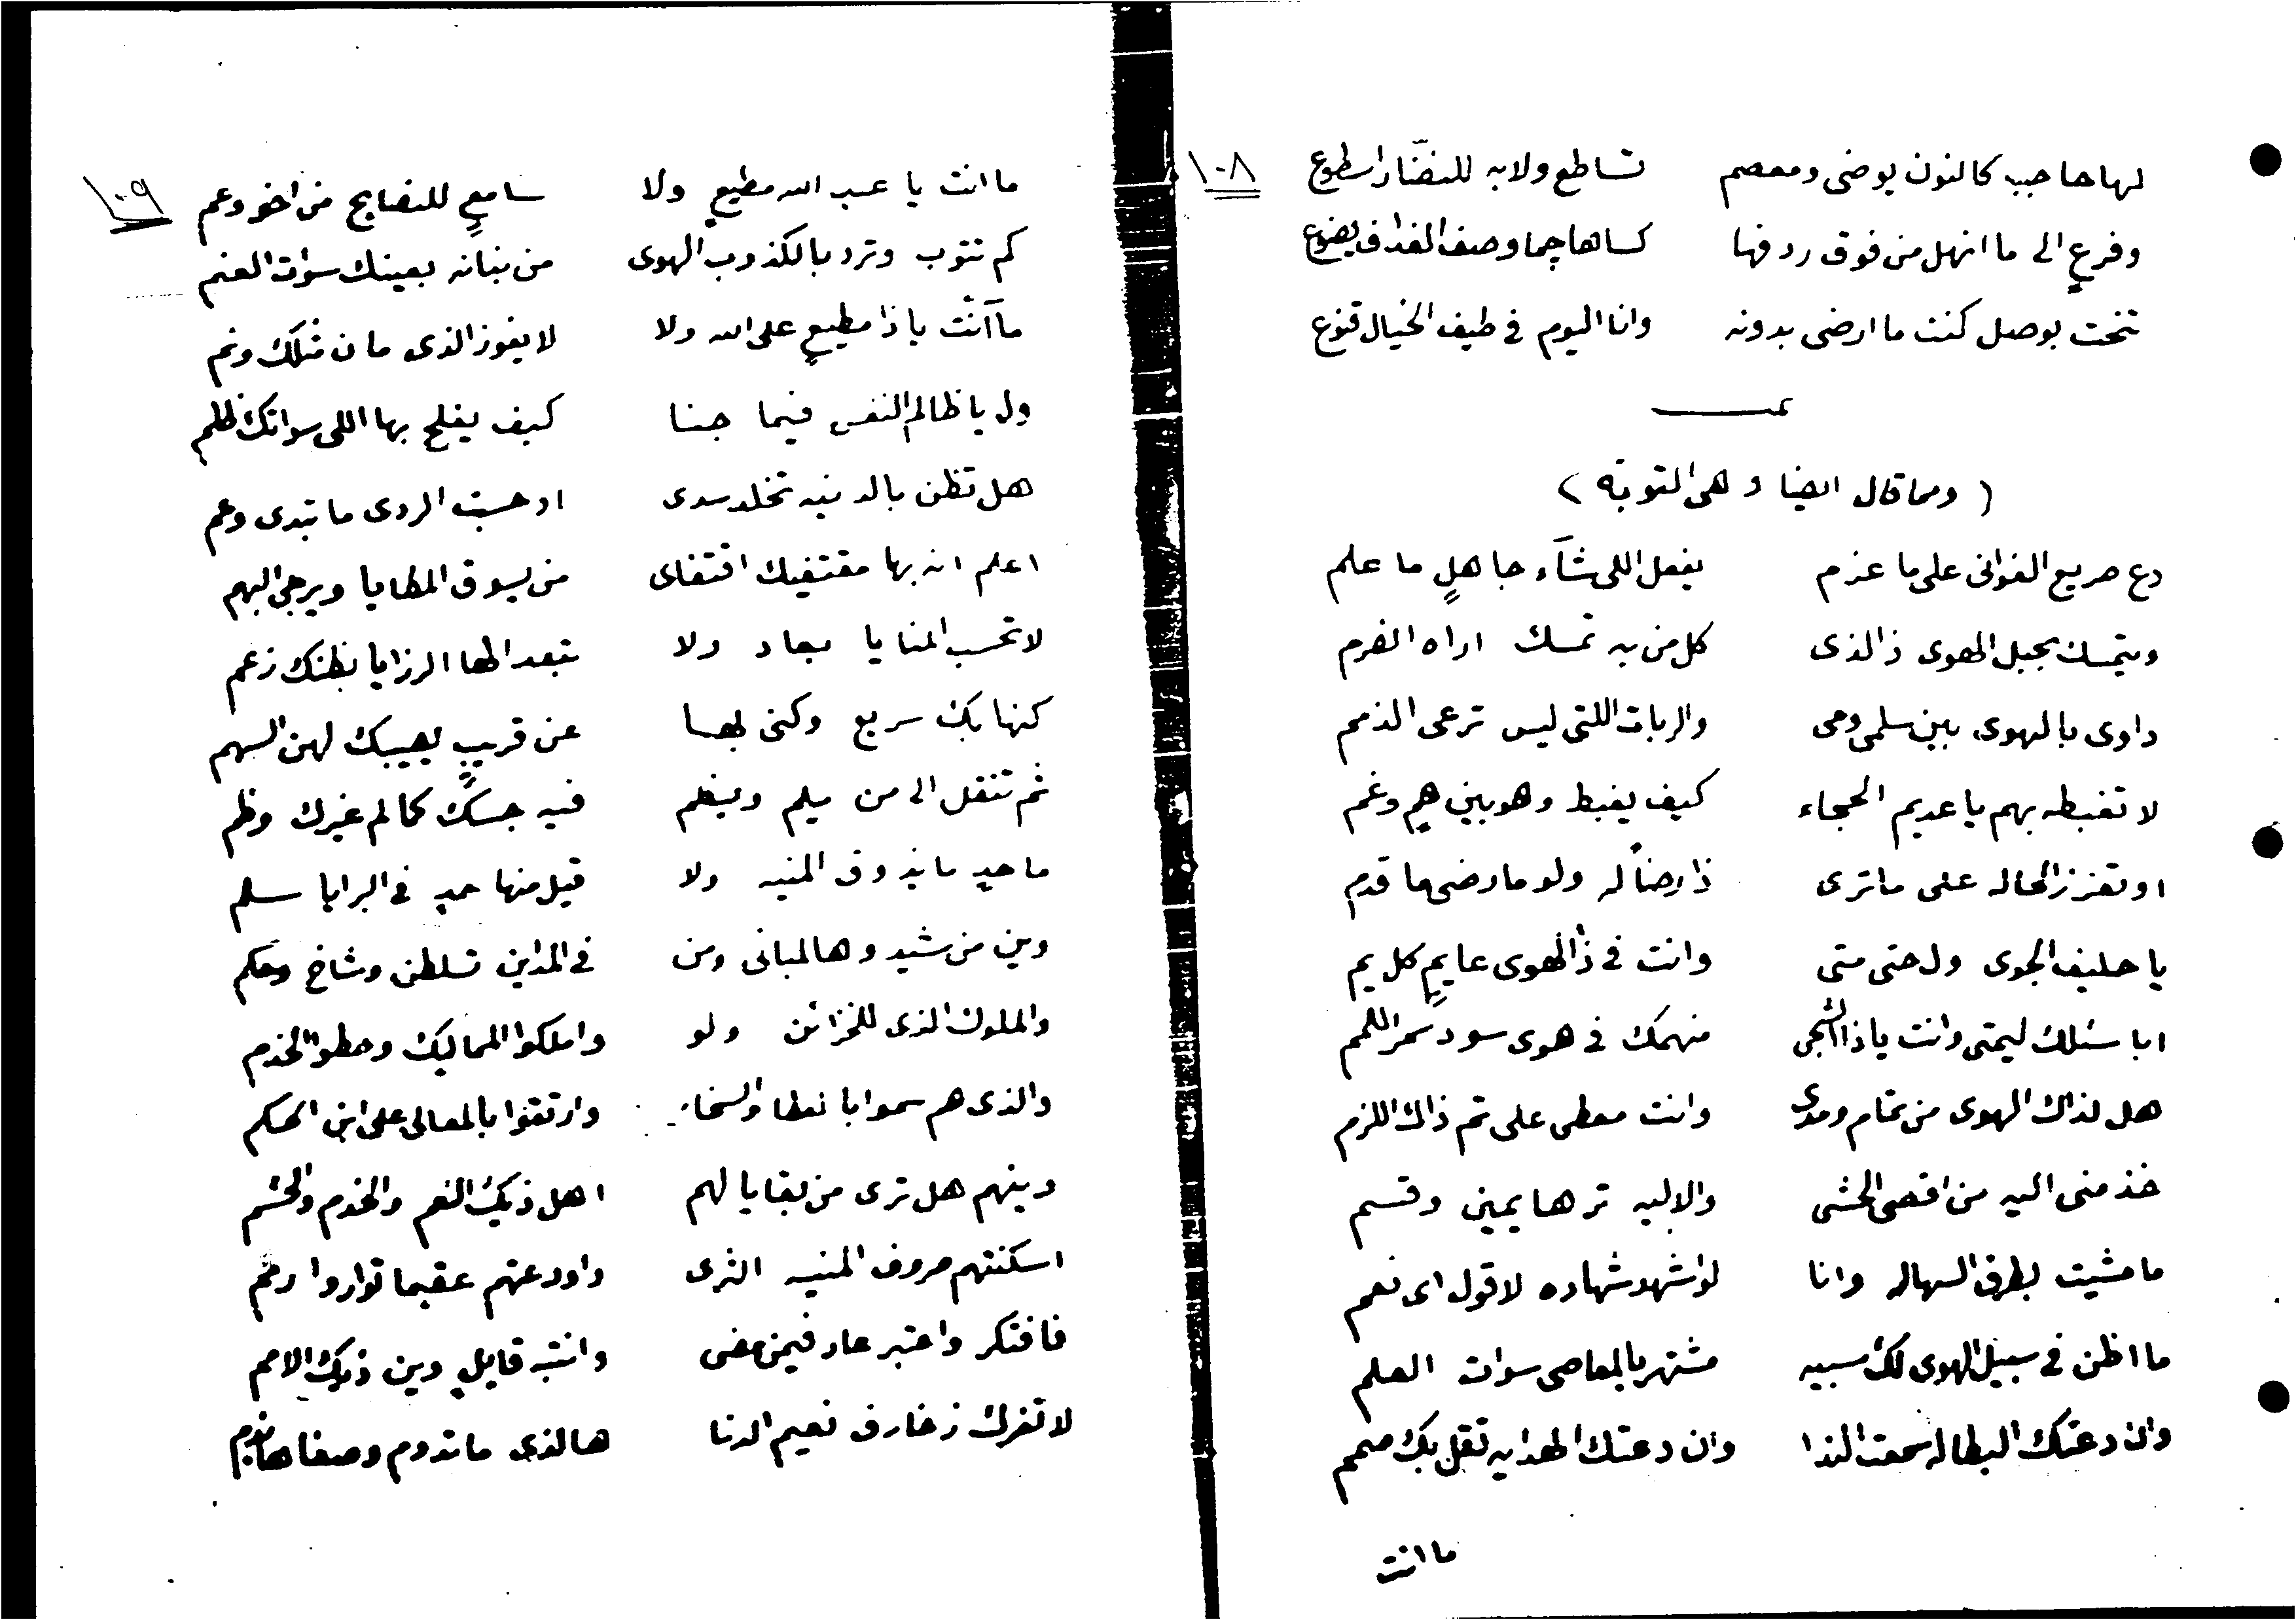 ١٠٨
لها حاجب كالنون يوضى ومعصم تساطع ولابه للنضّار اسطوع
وفرعٍ الى ما انهل من فوق ردفها كساها چما وصف الغداف يضوع
تخت بوصل كنت ما ارضى بدونه وانا اليوم في طيف الخيال قنوع
تمـــت
( ومما قال ايضا وهى التوبة )
دع صريع الغوانى على ما عزم يفعل اللى شآء جاهلٍ ما علم
ويتمسك بحبل الهوى ذالذى كل من به تمسك اراه انفرم
داوى بالهوى بين سلمى ومى والربات اللتى ليس ترعى الذمم
لا تغبطه بهم يا عديم الحجاء كيف يغبط وهو بين همٍ وغم
او تعزز لحاله على ماترى ذا رضاً له ولو ما رضى ما قدم
يا حليف الجوى ول حتى متى وانت في ذا الهوى عايمٍ كل يم
ابا سئلك ليمتى وانت يا ذا الشجى منهمك في هوى سود سمر اللمم
هل لذاك الهوى من تمام ومدى وانت معطى على تم ذاك اللزم
خذ منى اليه من اقصى الحشى والاليه ترها يمين وقسم
ما مشيت بطرق السهاله وانا لو اشهد شهاده لاقول اى نعم
ما اظن في سبيل الهوى لك سبيه مشتهر بالمعاصى سوات العلم
وان دعتك البطاله سمعت الندا وان دعتك الهدايه تقل بك صمم
ما انت
١٠٩
ما انت يا عبد الله مطيعٍ ولا سامعٍ للنصايح من اخو وعم
كم تتوب وترد بالكذوب الهوى من بنانه بعينك سوات العنم
مآ انت يا ذا مطيعٍ على الله ولا لا يفوز الذى مان مثلك ونم
ول يا ظالم النفس فيما جنا كيف يفلح بها اللى سواتك ظلم
هل تظن بالدنيه تخلد سدى او حسبت الردى ما تبدى وعم
اعلم انه بها مقتفيك اقتفاى من يسوق المطايا ويرجى البهم
لا تحسب المنايا بعاد ولا تبعد الها الرزايا بظنك زعم
كنها بك سريع وكنى بها عن قريبٍ يصيبك لهن السهم
ثم تنقل الى من يلم ويظم فيه جسمك كما لم غيرك وظم
ما حيٍ ما يذوق المنيه ولا قيل منها حيٍ في البرايا سلم
وين من شيدوها المبانى ومن في المداين تسلطن وشاخ وحكم
والملوك الذى للخزائن ولو واملكوا المماليك وحطوا الخدم
والذى هم سموا با لعطا والسخاء وارتقوا بالمعالى على ابن الحكم
وينهم هل ترى من بقايا لهم اهل ذيك النعم والخدم والحشم
اسكنتهم صروف المنيه الثرى واودعتهم عقبما تواروا رمم
فافتكر واعتبر عاد فيمن مضى وانتبه قايلٍ وين ذيك الامم
لا تغرك زخارف نعيم الدنا هالذى ما تدوم وصفاها يوم